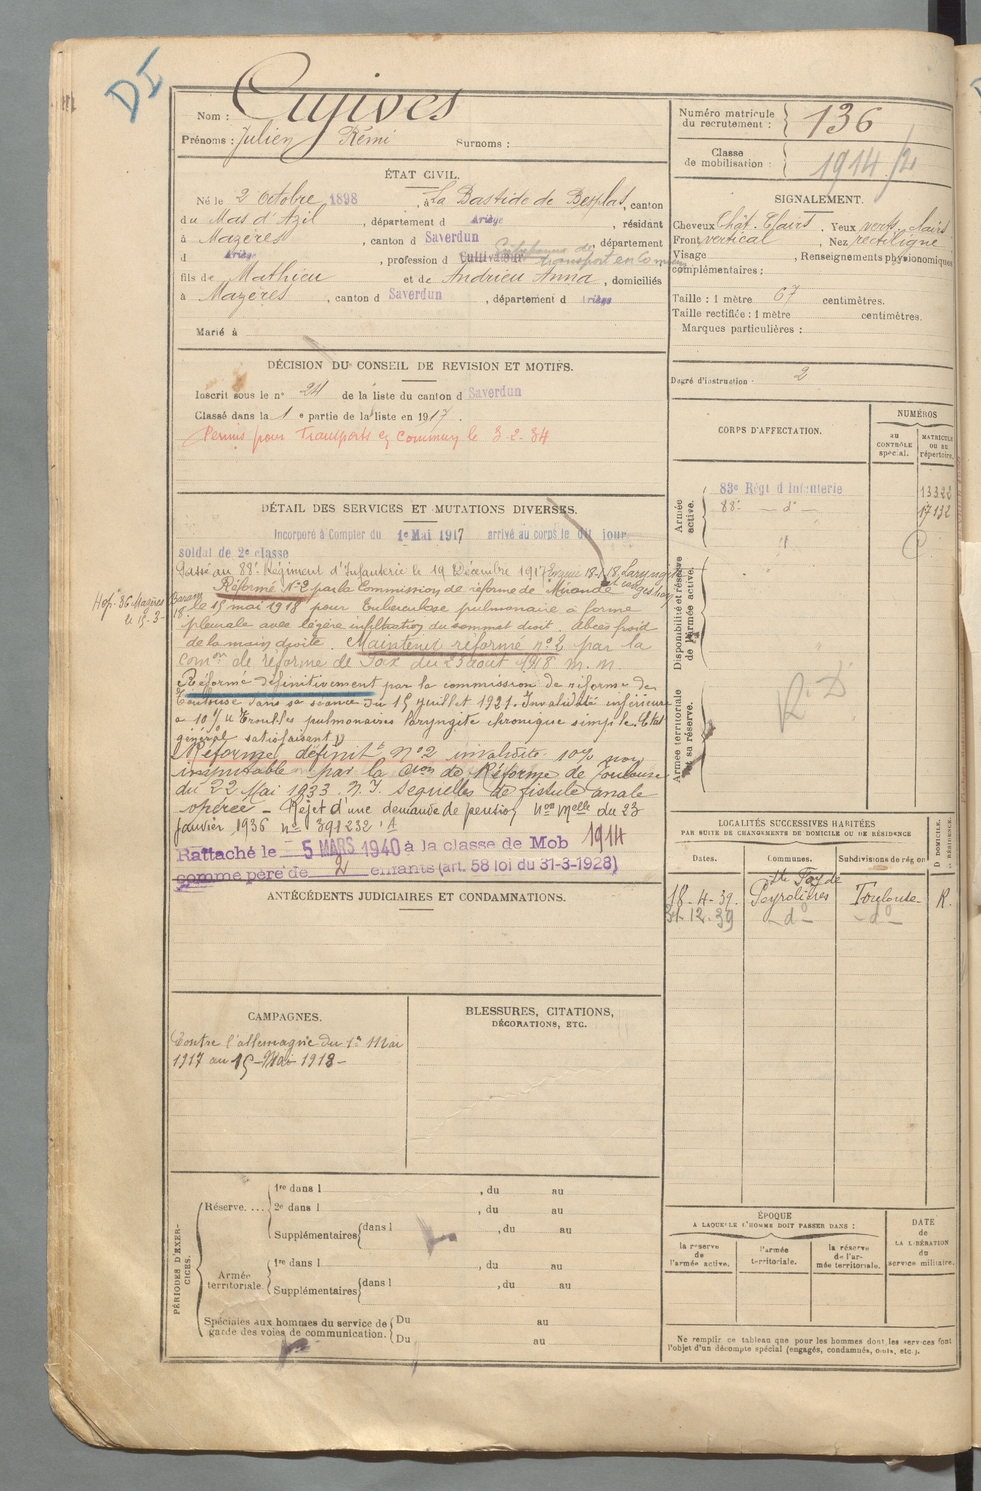 DI
Nom : Cujives
Prénoms : Julien Rémi Surnoms :
Numéro matricule du recrutement : 136
Classe de mobilisation : 1914/2
ÉTAT CIVIL.
Né le 2 Octobre 1898, à La Bastide de Besplas, canton
du Mas d'Azil, département d Ariège, résidant
à Mazères, canton d Saverdun, département
d Ariège, profession d Cultivateur Entrepreneur de transport en commun
fils de Mathieu et de Andrieu Anna, domiciliés
à Mazères, canton d Saverdun, département d Ariège
Marié à
SIGNALEMENT.
Cheveux Chât. Clairs. Yeux verts clairs
Front vertical, Nez rectiligne
Visage , Renseignements physionomiques
complémentaires :
Taille : 1 mètre 67 centimètres.
Taille rectifiée : 1 mètre centimètres.
Marques particulières :
Degré d'instruction : 2
DÉCISION DU CONSEIL DE REVISION ET MOTIFS.
Inscrit sous le n° 24 de la liste du canton d Saverdun
Classé dans la 1e partie de la liste en 1917.
Permis pour Transports en Commun le 3-2-34
CORPS D'AFFECTATION.
NUMÉROS
AU CONTRÔLE spécial.
MATRICULE OU AU répertoire.
Armée active.
83e Régt d'Infanterie 13322
88e - d° - 17132
Disponibilité et réserve de l'armée active.
Armée territoriale et sa réserve.
R.D
DÉTAIL DES SERVICES ET MUTATIONS DIVERSES.
Incorporé à Compter du 1e Mai 1917 arrivé au corps le dit jour
soldat de 2e classe
Passé au 88e Régiment d'Infanterie le 19 Décembre 1917
Réformé N°2 par la Commission de réforme de Mirande
Hop. 86 Mazères
le 15 mai 1918 pour Tuberculose pulmonaire à forme
pleurale avec légère infiltration du sommet droit. abcès froid
de la main droite. Maintenu réformé n° 2 par la
Comon de réforme de Foix du 23 août 1918 m.m.
Réformé définitivement par la commission de réforme de
Toulouse dans sa séance du 15 juillet 1921. Invalidité inférieure
à 10% Troubles pulmonaires laryngite chronique simple. Etat
général satisfaisant.
Réformé définitt n°2 invalidité 10% non
imputable par la Cion de Réforme de Toulouse
du 22 Mai 1933. N.I. sequelles de fistule anale
opérée - Rejet d'une demande de pension Non Melle du 23
Janvier 1936 n° 391232 A
Rattaché le 5 MARS 1940 à la classe de Mob 1914
comme père de 2 enfants (art. 58 loi du 31-3-1928)
LOCALITÉS SUCCESSIVES HABITÉES
PAR SUITE DE CHANGEMENTS DE DOMICILE OU DE RÉSIDENCE
Dates. Communes. Subdivisions de région D DOMICILE. R RÉSIDENCE.
18-4-39. Ste Foy de Peyrolières Toulouse R.
31-12-39 - d° - - d° -
ANTÉCÉDENTS JUDICIAIRES ET CONDAMNATIONS.
CAMPAGNES.
Contre l'allemagne du 1er Mai
1917 au 15 Mai 1918 -
BLESSURES, CITATIONS, DÉCORATIONS, ETC.
PÉRIODES D'EXERCICES.
Réserve....
1re dans l , du au
2e dans l , du au
Supplémentaires dans l , du au
Armée territoriale.
1re dans l , du au
Supplémentaires dans l , du au
Spéciales aux hommes du service de garde des voies de communication.
Du au
Du au
ÉPOQUE
A LAQUELLE L'HOMME DOIT PASSER DANS :
la réserve de l'armée active.
l'armée territoriale.
la réserve de l'armée territoriale.
DATE de LA LIBÉRATION du service militaire.
Ne remplir ce tableau que pour les hommes dont les services font
l'objet d'un décompte spécial (engagés, condamnés, omis, etc.).